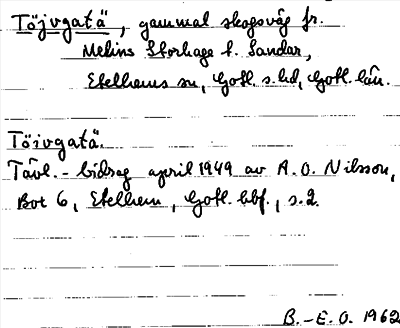 Töjvgatä, gammal skogsväg fr.
Melins Storhage t. Sandar,
Etelhems sn, Gotl. s. hd, Gotl. län.
Töivgatä.
Tävl.-bidrag april 1949 av A.O. Nilsson,
Bot 6, Etelhem, Gotl. hbf., s.2.
B.-E.O. 1962